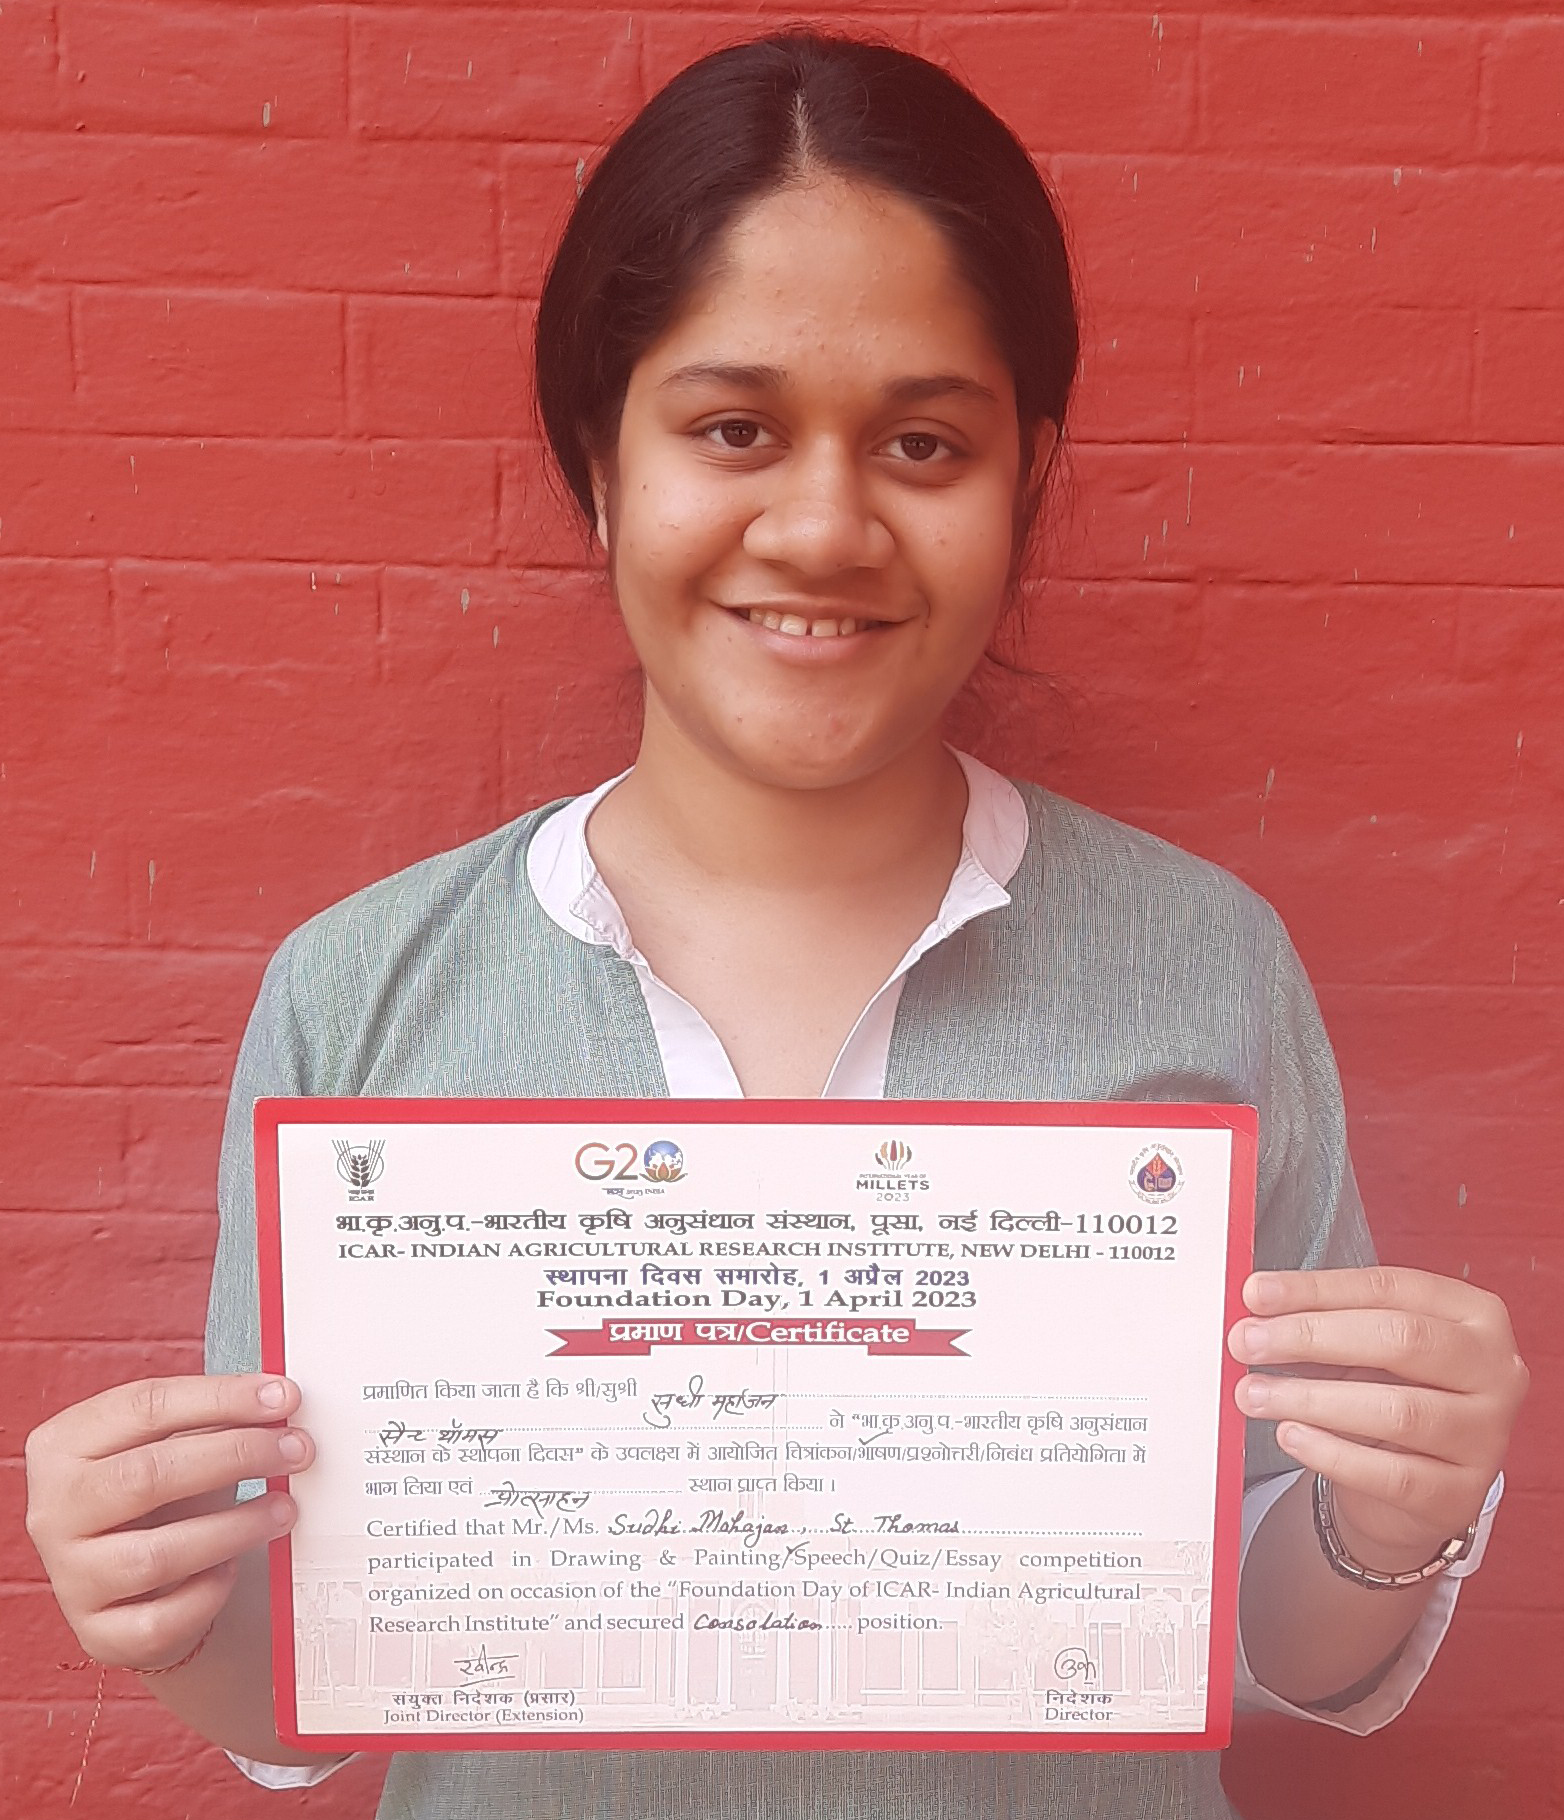 ICAR
G20
भारत 2023 INDIA
INTERNATIONAL YEAR OF
MILLETS
2023
भा.कृ.अनु.प.-भारतीय कृषि अनुसंधान संस्थान, पूसा, नई दिल्ली-110012
ICAR- INDIAN AGRICULTURAL RESEARCH INSTITUTE, NEW DELHI - 110012
स्थापना दिवस समारोह, 1 अप्रैल 2023
Foundation Day, 1 April 2023
प्रमाण पत्र/Certificate
प्रमाणित किया जाता है कि श्री/सुश्री सुधी महाजन
सैन्ट थॉमस ने "भा.कृ.अनु.प.-भारतीय कृषि अनुसंधान
संस्थान के स्थापना दिवस" के उपलक्ष्य में आयोजित चित्रांकन/भाषण/प्रश्नोत्तरी/निबंध प्रतियोगिता में
भाग लिया एवं प्रोत्साहन स्थान प्राप्त किया।
Certified that Mr./Ms. Sudhi Mahajan, St. Thomas
participated in Drawing & Painting/Speech/Quiz/Essay competition
organized on occasion of the "Foundation Day of ICAR- Indian Agricultural
Research Institute" and secured Consolation position.
रवीन्द्र
संयुक्त निदेशक (प्रसार)
Joint Director (Extension)
निदेशक
Director